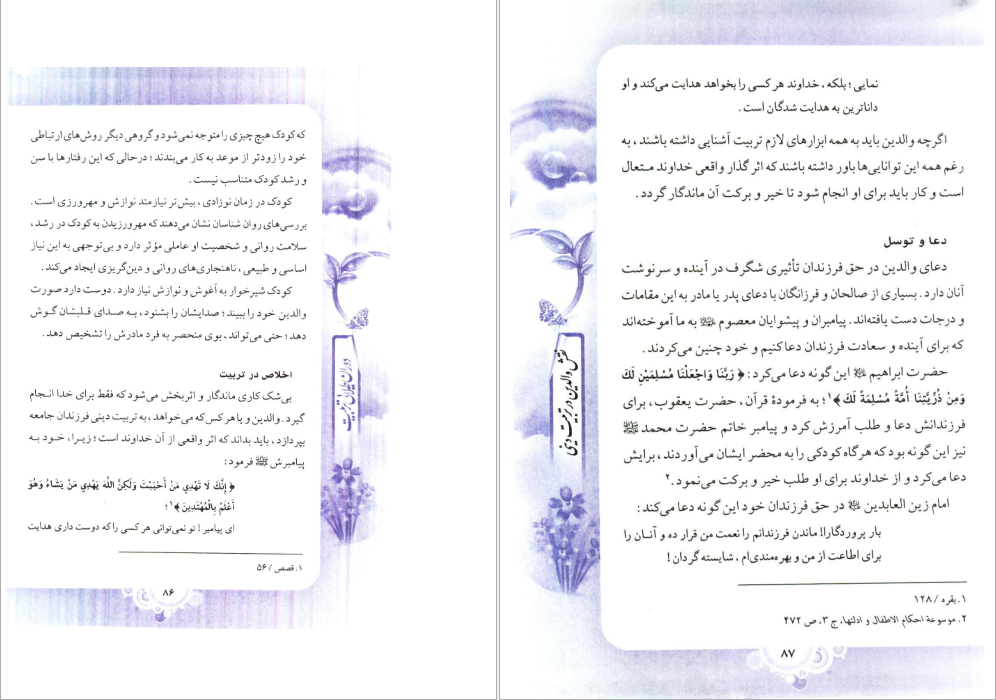 که کودک هیچ چیزی را متوجه نمی‌شود و گروهی دیگر روش‌های ارتباطی
خود را زودتر از موعد به کار می‌بندند ؛ درحالی که این رفتارها با سن
و رشد کودک متناسب نیست .
کودک در زمان نوزادی، بیش‌تر نیازمند نوازش و مهرورزی است .
بررسی‌های روان شناسان نشان می‌دهند که مهرورزیدن به کودک در رشد،
سلامت روانی و شخصیت او عاملی مؤثر دارد و بی‌توجهی به این نیاز
اساسی و طبیعی ، ناهنجاری‌های روانی و دین‌گریزی ایجاد می‌کند .
کودک شیرخوار به آغوش و نوازش نیاز دارد . دوست دارد صورت
والدین خود را ببیند ؛ صدایشان را بشنود، بـه صـدای قـلبشان گـوش
دهد ؛ حتی می‌تواند ، بوی منحصر به فرد مادرش را تشخیص دهد .
اخلاص در تربیت
بی‌شک کاری ماندگار و اثربخش می‌شود که فقط برای خدا انـجام
گیرد . والدین و یا هر کس که می‌خواهد ، به تربیت دینی فرزندان جامعه
بپردازد ، باید بداند که اثر واقعی از آن خداوند است ؛ زیـرا، خـود بـه
پیامبرش ﷺ فرمود :
﴿ إِنَّكَ لَا تَهْدِي مَنْ أَحْبَبْتَ وَلَكِنَّ اللَّهَ يَهْدِي مَنْ يَشَاءُ وَهُوَ
أَعْلَمُ بِالْمُهْتَدِينَ ﴾۱؛
ای پیامبر ! تو نمی‌توانی هر کسی را که دوست داری هدایت
۱. قصص / ۵۶
۸۶
دوران طلایی تربیت
نمایی ؛ بلکه ، خداوند هر کسی را بخواهد هدایت می‌کند و او
داناترین به هدایت شدگان است .
اگرچه والدین باید به همه ابزارهای لازم تربیت آشنایی داشته باشند ، به
رغم همه این توانایی‌ها باور داشته باشند که اثر گذار واقعی خداوند مـتعال
است و کار باید برای او انجام شود تا خیر و برکت آن ماندگار گردد .
دعا و توسل
دعای والدین در حق فرزندان تأثیری شگرف در آینده و سرنوشت
آنان دارد . بسیاری از صالحان و فرزانگان با دعای پدر یا مادر به این مقامات
و درجات دست یافته‌اند. پیامبران و پیشوایان معصوم ﷺ به ما آموخته‌اند
که برای آینده و سعادت فرزندان دعا کنیم و خود چنین می‌کردند .
حضرت ابراهیم این گونه دعا می‌کرد : ﴿ رَبَّنَا وَاجْعَلْنَا مُسْلِمَيْنِ لَكَ
وَمِنْ ذُرِّيَّتِنَا أُمَّةً مُسْلِمَةً لَكَ ﴾۱؛ به فرمودهٔ قرآن ، حضرت یعقوب، برای
فرزندانش دعا و طلب آمرزش کرد و پیامبر خاتم حضرت محمد ﷺ
نیز این گونه بود که هرگاه کودکی را به محضر ایشان می‌آوردند ، برایش
دعا می‌کرد و از خداوند برای او طلب خیر و برکت می‌نمود .۲
امام زین العابدین در حق فرزندان خود این گونه دعا می‌کند :
بار پروردگارا! ماندن فرزندانم را نعمت من قرار ده و آنـان را
برای اطاعت از من و بهره‌مندی‌ام ، شایسته گردان !
۱. بقره / ۱۲۸
۲. موسوعة احکام الاطفال و ادلتها، ج ۳، ص ۴۷۲
۸۷
نقش والدین در تربیت دینی